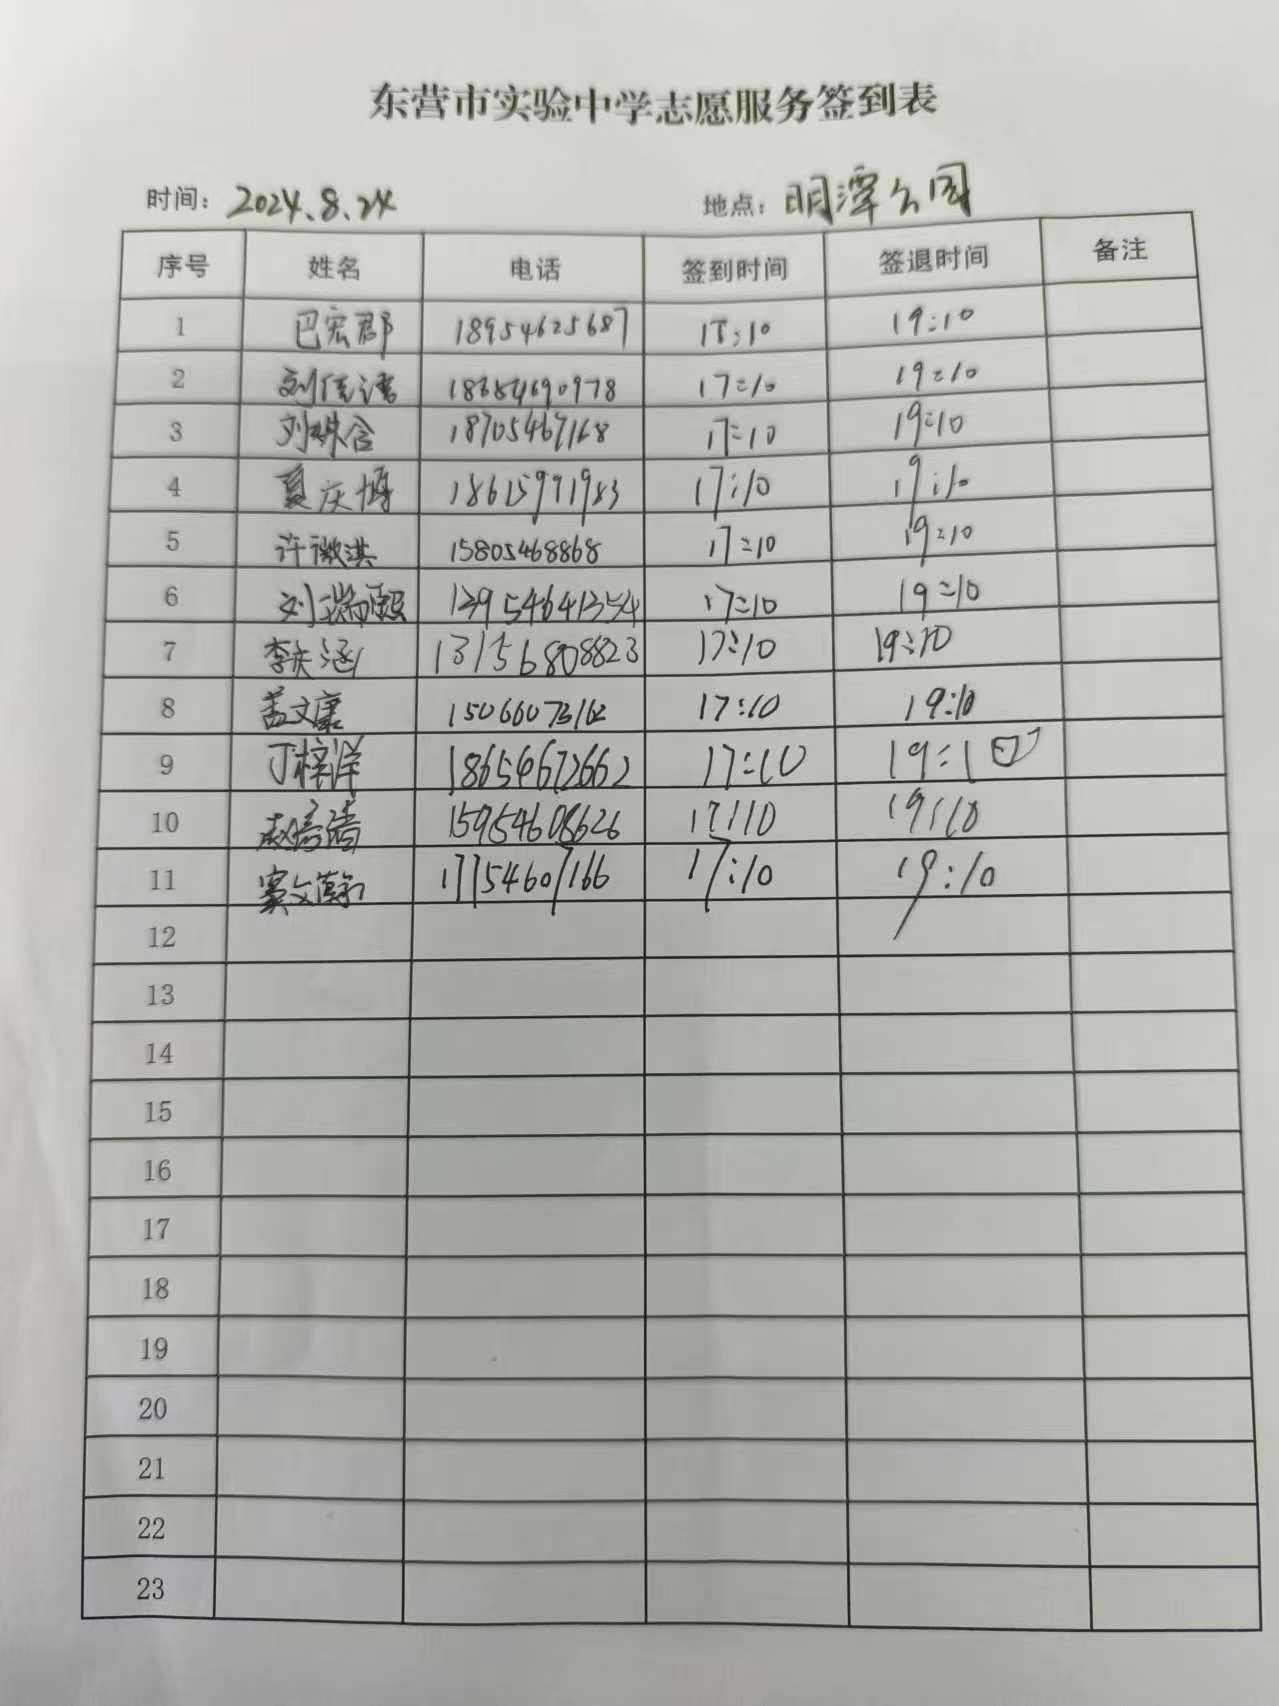 东营市实验中学志愿服务签到表
时间: 2024.8.24 地点: 明潭公园
序号 姓名 电话 签到时间 签退时间 备注
1 巴宏郡 18954625687 17:10 19:10
2 刘佳诺 18654690978 17:10 19:10
3 刘姝含 18705467168 17:10 19:10
4 夏庆博 18615991983 17:10 19:10
5 许微淇 15805468868 17:10 19:10
6 刘瑞熙 13954641354 17:10 19:10
7 李庆涵 13156808823 17:10 19:10
8 盖文康 15066073162 17:10 19:10
9 丁梓洋 18654672662 17:10 19:10
10 15954608626 17:10 19:10
11 窦文瀚 17754607166 17:10 19:10
12
13
14
15
16
17
18
19
20
21
22
23